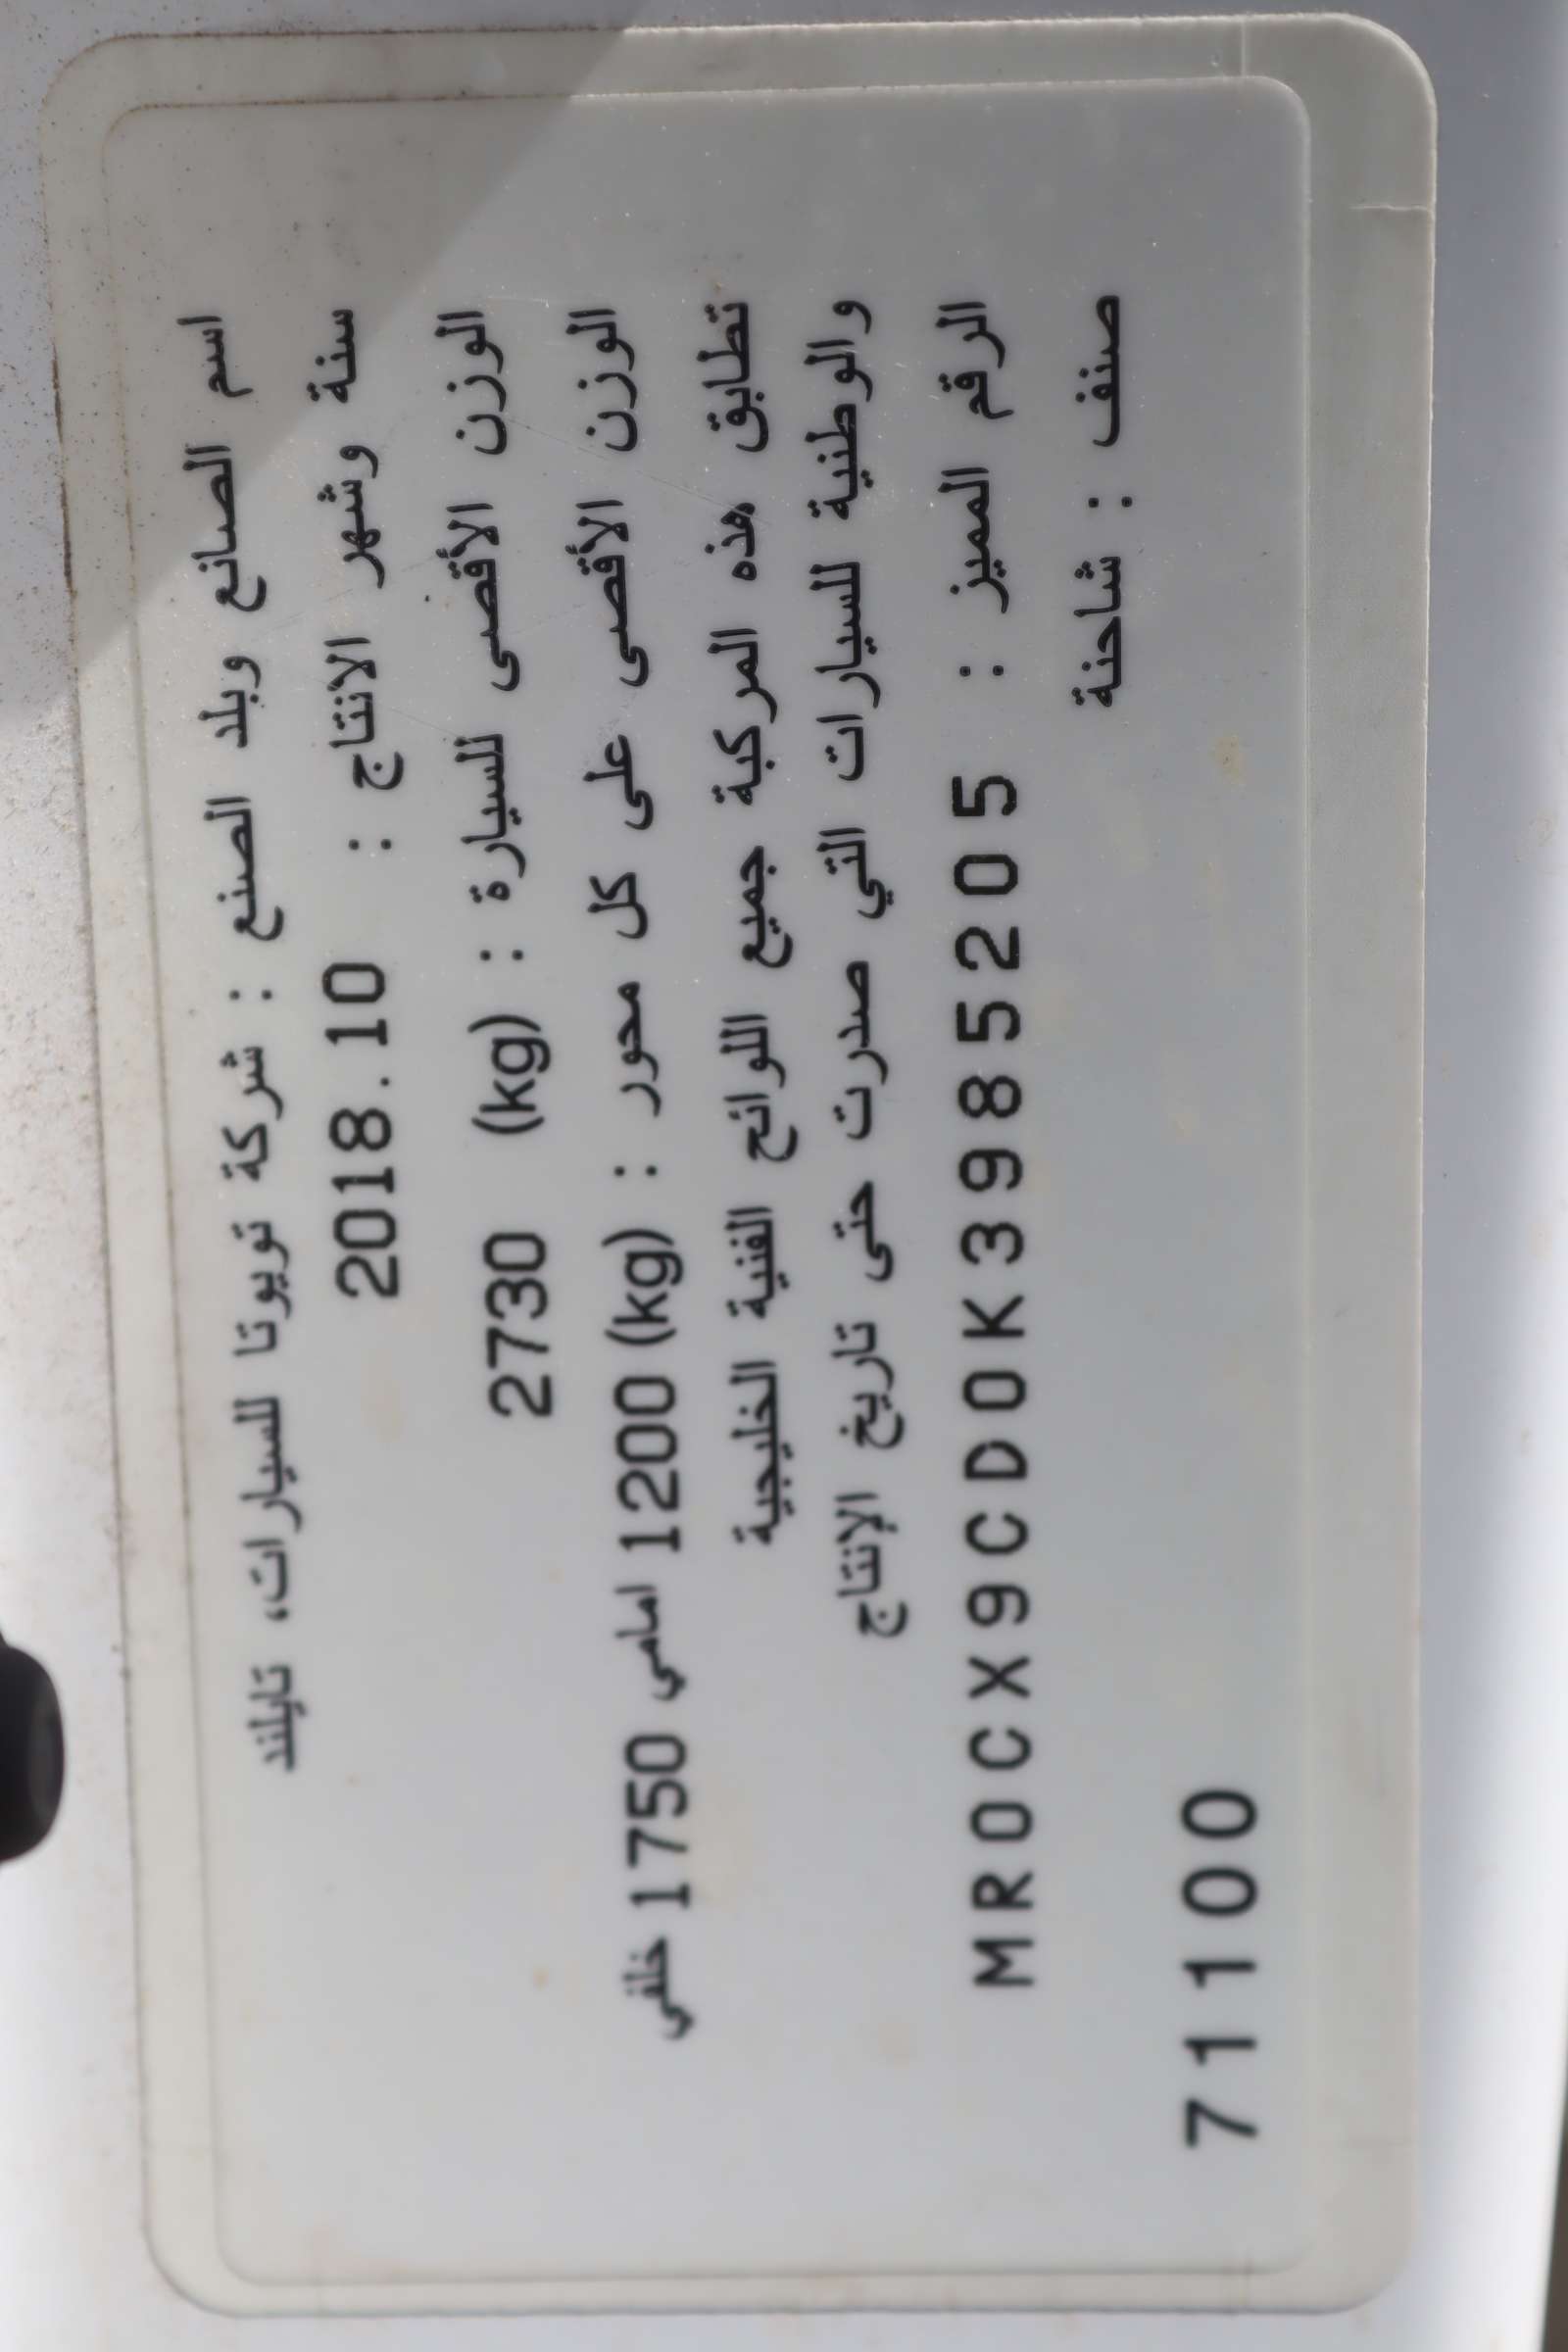 اسم الصانع وبلد الصنع : شركة تويوتا للسيارات، تايلند
سنة وشهر الانتاج : 2018.10
الوزن الأقصى للسيارة : (kg) 2730
الوزن الأقصى على كل محور : (kg) 1200 امامي 1750 خلفي
تطابق هذه المركبة جميع اللوائح الفنية الخليجية
والوطنية للسيارات التي صدرت حتى تاريخ الإنتاج
الرقم المميز : MR0CX9CD0K3985205
صنف : شاحنة
71100